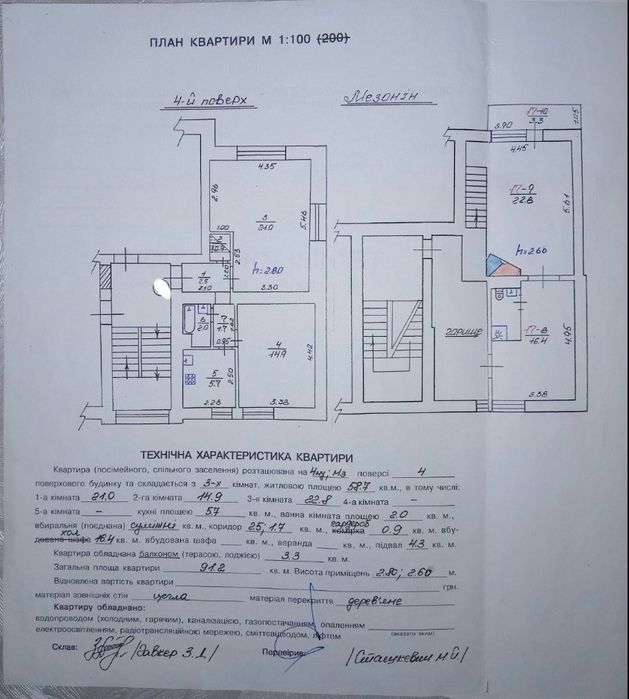 ПЛАН КВАРТИРИ М 1:100 (200)
4-й поверх
Мезонін
17-10
3.3
1.05
3.90
4.45
17-9
22.8
5.61
h=2.60
4.35
2.96
3
21.0
5.46
1.00
2.63
h=2.80
3.50
1
2.5
2.10
6
2.0
7
1.7
0.95
4
14.9
4.42
3.38
5
5.7
2.50
2.28
горище
17-8
16.4
4.95
3.38
ТЕХНІЧНА ХАРАКТЕРИСТИКА КВАРТИРИ
Квартира (посімейного, спільного заселення) розташована на 4му; мз поверсі 4
поверхового будинку та складається з 3-х кімнат, житловою площею 58.7 кв.м., в тому числі:
1-а кімната 21.0 2-га кімната 14.9 3-я кімната 22.8 4-а кімната –
5-а кімната – кухні площею 5.7 кв.м., ванна кімната площею 2.0 кв. м.,
вбиральня (поєднана) суміжні кв. м., коридор 2.5, 1.7 кв. м., гардероб комірка 0.9 кв. м вбу-
дована шафа хол 16.4 кв. м. вбудована шафа кв. м., веранда кв. м., підвал 4.3 кв. м.
Квартира обладнана балконом (терасою, лоджією) 3.3 кв. м.
Загальна площа квартири 91.2 кв. м. Висота приміщень 2.80; 2.60 м.
Відновлена вартість квартири грн.
матеріал зовнішніх стін цегла матеріал перекриття дерев'яне
Квартиру обладнано:
водопроводом (холодним, гарячим), каналізацією, газопостачанням, опаленням
електроосвітленням, радіотрансляційною мережею, сміттєвідводом, ліфтом (вказати яким)
Склав: Перевірив: